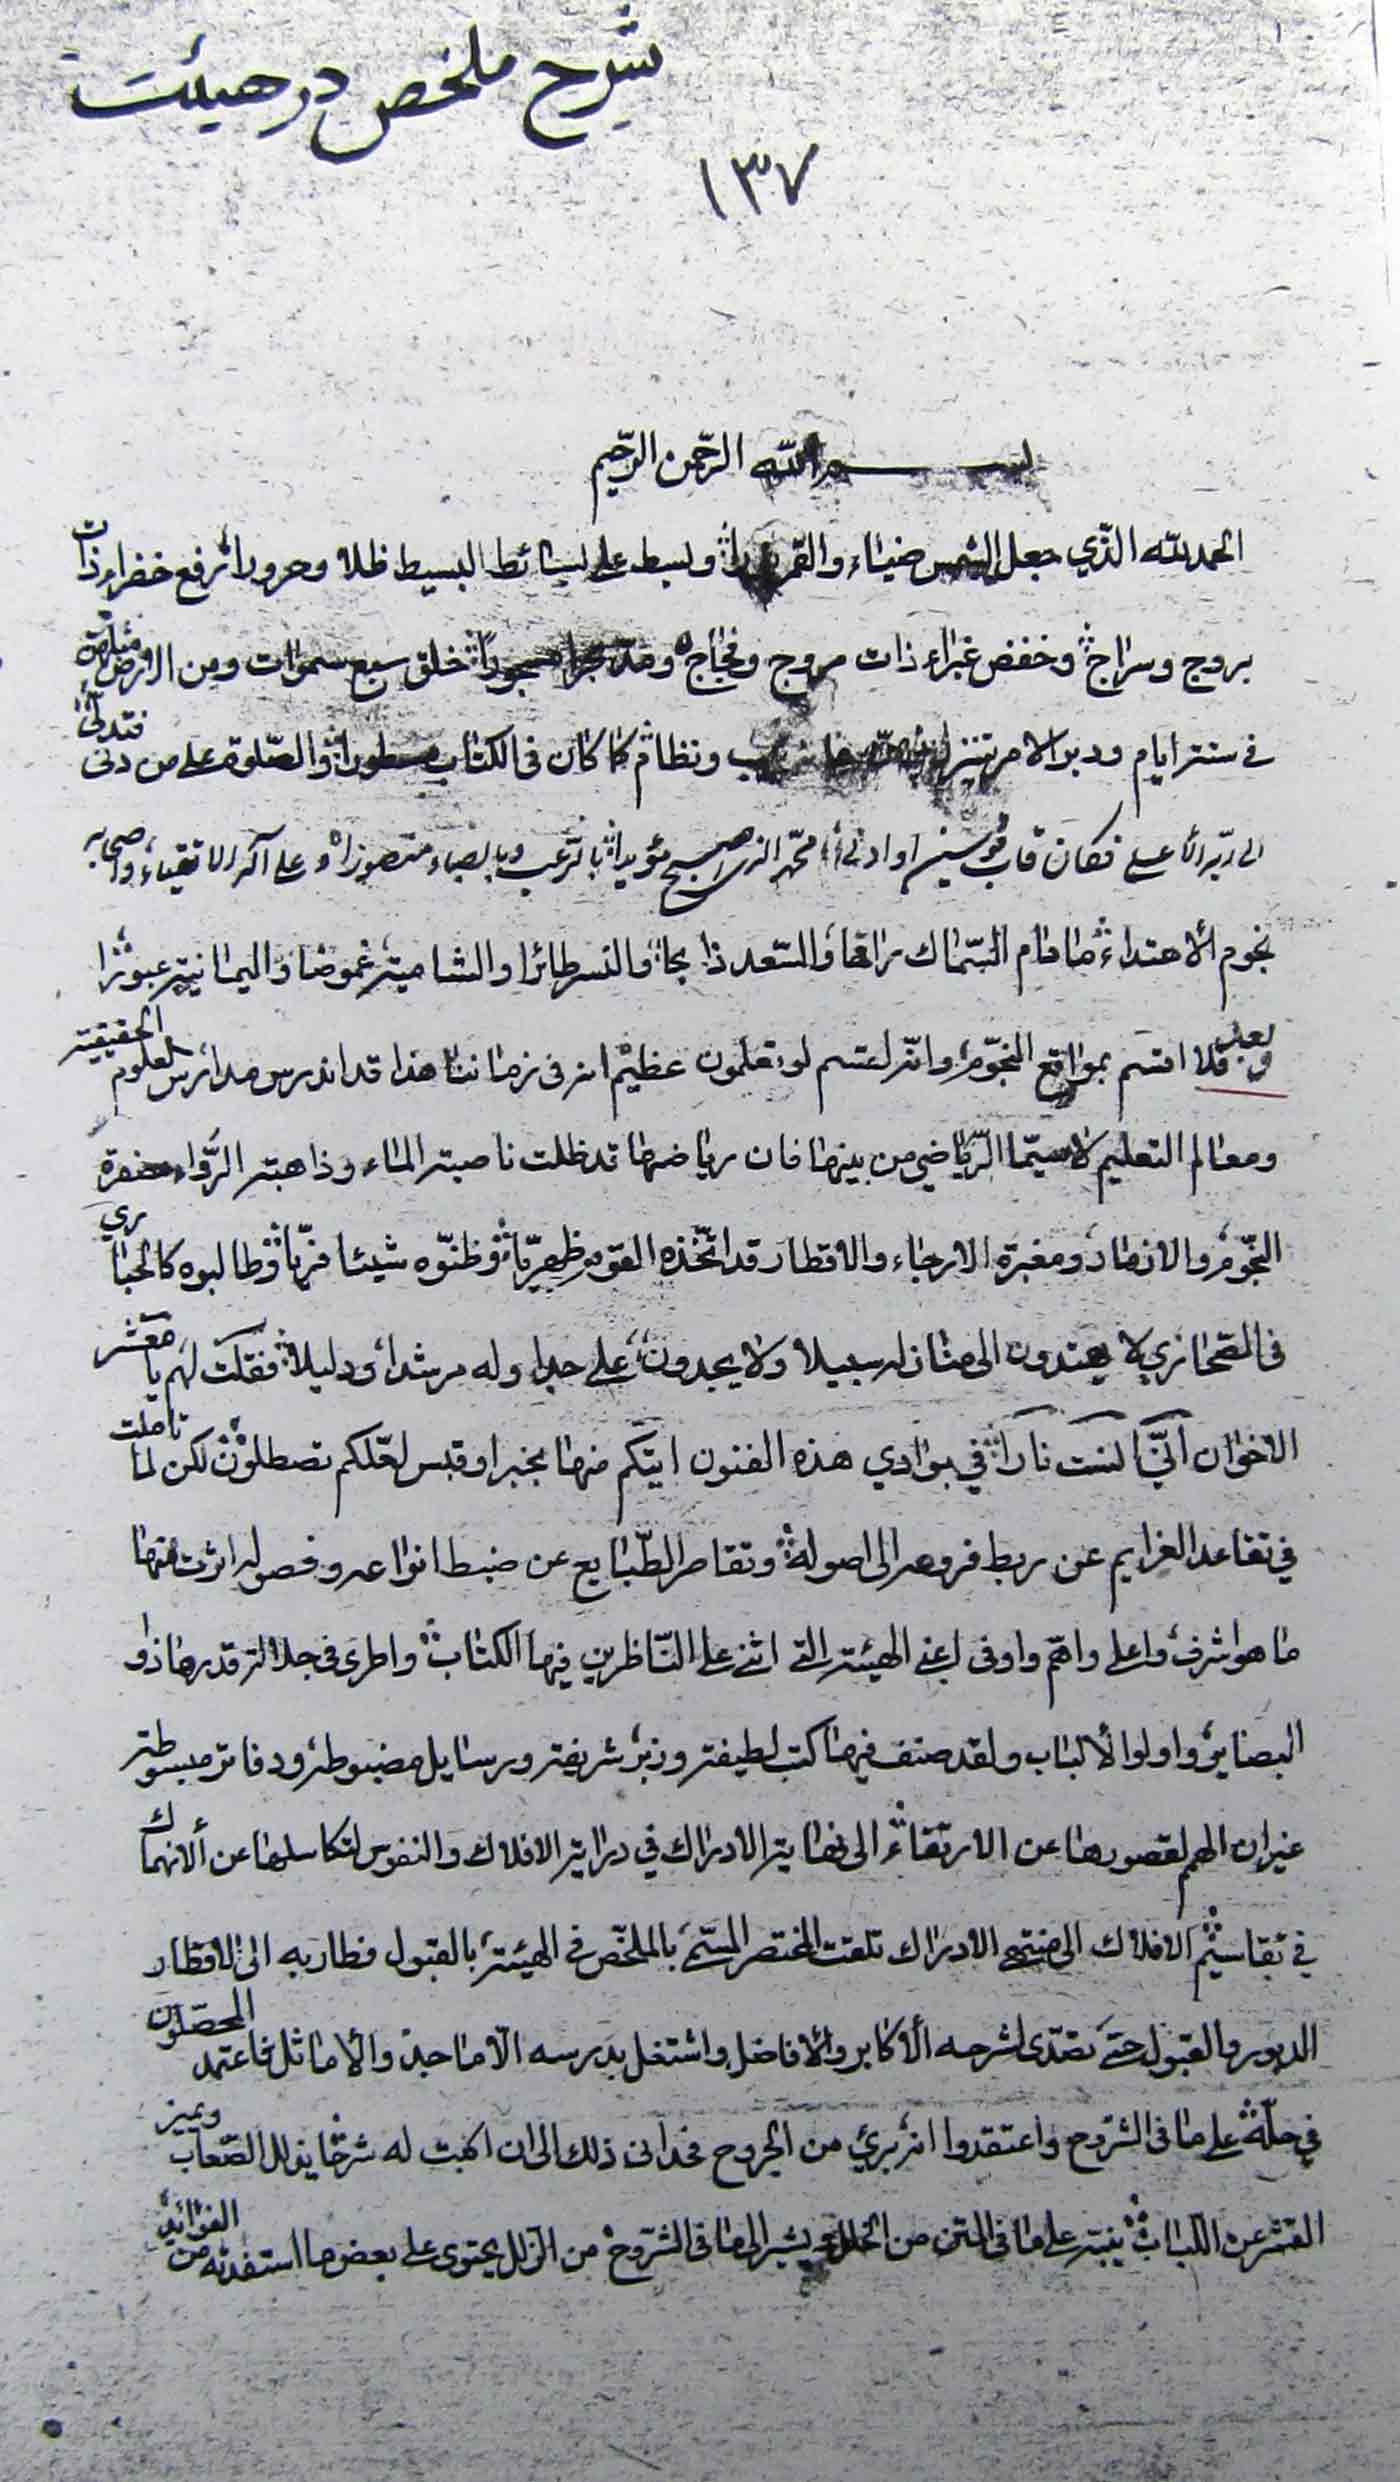 شرح ملخص در هيئت
١٣٧
بسم الله الرّحمن الرّحيم
الحمد لله الّذي جعل الشمس ضياء والقمر نورا وبسط على بسائط البسيط ظلا وحرورا رفع خضراء ذات
بروج وسراج وخفض غبراء ذات مروج وفجاج ومدّ بحرا مسجورا خلق سبع سموات ومن الارض مثلهن
فى ستة ايام ودبر الامر يتنزل بينهن ونظام كما كان فى الكتاب مسطورا والصّلوة على من دنى فتدلّى
الى ربّه الأعلى فكان قاب قوسين او ادنى محمّد الذى اصبح مؤيدا بالرّعب وبالصباء منصورا وعلى آله الاتقياء واصحابه
نجوم الأهتداء ما قام السّماك رامحا والسّعد ذابحا والنسر طائرا والشامية غموضا واليمانية عبورا
وبعد فلا اقسم بمواقع النجوم وانّه لقسم لو تعلمون عظيم انه فى زماننا هذا قد اندرس مدارس العلوم الحقيقية
ومعالم التعليم لا سيّما الرّياضي من بينها فان رياضها قد ظلت ناصبة الماء وذاهبة الرّواء مصفرة
النجوم والازهار ومغبرة الارجاء والاقطار قد اتّخذه القوم ظهريّا وظنّوه شيئا فريّا وطالبوه كالحباري
فى الصّحاري لا يهتدون الى مثاله سبيلا ولا يجدون على جداوله مرشدا ودليلا فقلت لهم يا معشر
الاخوان انّي آنست نارا في بوادي هذه الفنون آتيكم منها بخبر او قبس لعلّكم تصطلون لكن لما تاملت
في تقاعد العزايم عن ربط فروعه الى اصوله وتقاصر الطّبايع عن ضبط انواعه وفصوله اثرت منها
ما هو اشرف واعلى واهمّ واوفى اعنى الهيئة التى اثنى على النّاظرين فيها الكتاب واطرى فى جلالة قدرها ذوا
البصاير واولوا الألباب ولقد صنف فيها كتب لطيفة وزبر شريفة ورسايل مضبوطة ودفاتر مبسوطة
غير ان الهمم لقصورها عن الارتقاء الى نهاية الادراك في دراية الافلاك والنفوس لتكاسلها عن الانهماك
في تقاسيم الافلاك الى منتهى الادراك تلقت المختصر المسمّى بالملخّص فى الهيئة بالقبول فطار به الى الاقطار
الدبور والقبول حتى تصدّى لشرحه الأكابر والأفاضل واشتغل بدرسه الأماجد والأماثل فاعتمد المحصّلون
في حلّه على ما فى الشروح واعتقدوا انه بريء من الجروح فحدانى ذلك الى ان اكتب له شرحا يذلل الصّعاب ويميز
القشر عن اللّباب ينبّه على ما فى المتن من الخلل ويشير الى ما فى الشّروح من الزلل يحتوى على بعض ما استفدته من الفوائد